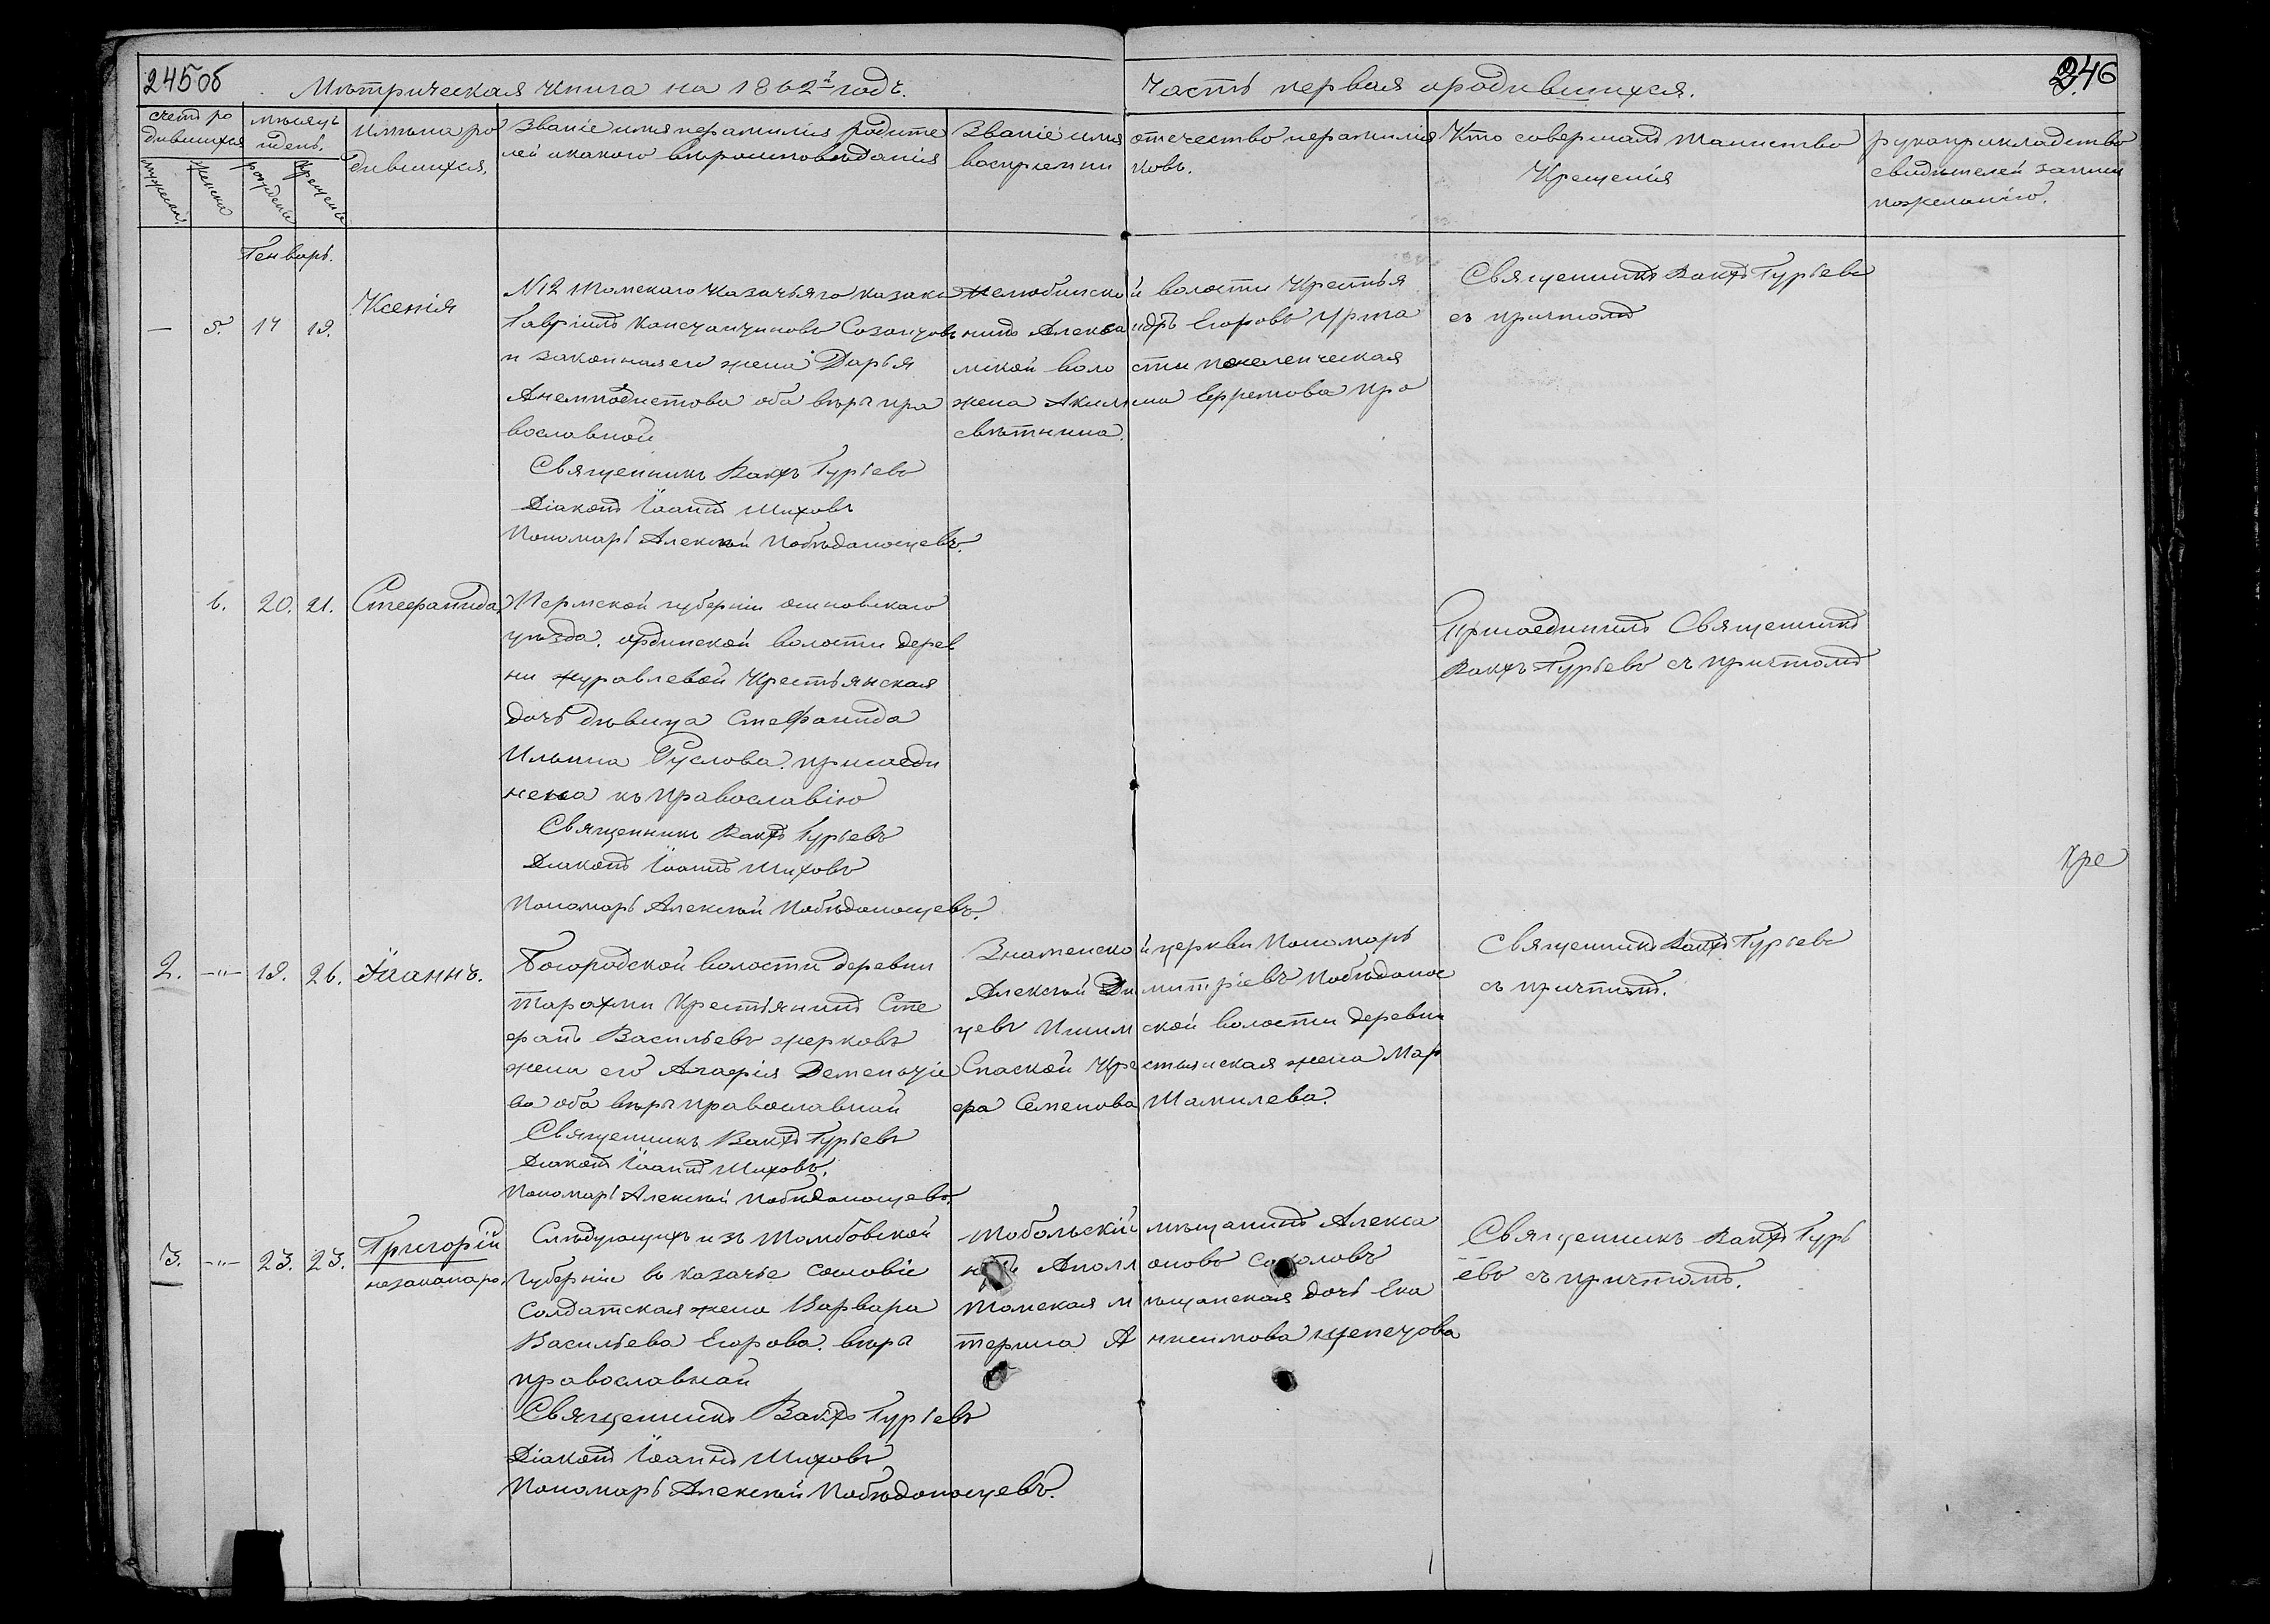 245 об
246
Метрическая книга на 1862й годъ.
Часть первая ородившихся.
счетъ ро
дившихся
мужеска.
женска
мѣсяцъ
идень.
рожденіе
крещеніе
Имѣна ро
дившихся.
Званіе имя иеѳамилія родите
лей икакого вѣроисповѣданія
Званіе имя отечество иеѳамилія
воспріемни ковъ.
Кто совершалъ таинство
Крещенія
рукоприкладство
свидѣтелей записи
пожеланію.
Генварь.
— 5. 17 19.
Ксенія
N12 Томскаго казачьяго казакъ
Гавріилъ Константиновъ
и законная его жена Дарья
Анемподистова оба вѣры пра
вославной
Священникъ Вакхъ Гурьевъ
Діаконъ Іоаннъ Шиховъ
Пономарь Алексѣй Побѣдоносцевъ.
Нелюбинско й волости Крестья
нинъ Алекса ндръ Егоровъ Урта
мской воло сти поселенческая
жена Акили на Ефремова про
свѣтнина.
Священникъ Вакхъ Гурьевъ
съ причтомъ
6. 20. 21.
Стефанида
Пермской губерніи осиновскаго
уѣзда. ординской волости дерев
ни журавлевой Крестьянская
дочь дѣвица Стефанида
Ильина Руслова. присоеди
нена къ православію
Священникъ Вакхъ Гурьевъ
Діаконъ Іоаннъ Шиховъ
Пономарь Алексѣй Побѣдоносцевъ.
Присоединилъ Священникъ
Вакхъ Гурьевъ съ причтомъ
Кре
2. -"- 19. 26.
Іоаннъ.
Богородской волости деревни
Тарахли Крестьянинъ Сте
фанъ Васильевъ жерковъ
жена его Агафія Дементіе
ва оба вѣры православной
Священникъ Вакхъ Гурьевъ
Діаконъ Іоаннъ Шиховъ.
Пономарь Алексѣй Побѣдоносцевъ.
Знаменско й церкви Пономарь
Алексѣй Ди митріевъ Побѣдонос
цевъ Ишим ской волости деревни
Спаской Кре стьянская жена Мар
фа Семенова Шамилева.
Священникъ Вакхъ Гурьевъ
съ причтомъ.
3. -"- 23. 23.
Григорій
незаконнаро.
Слѣдующихъ изъ Тамбовской
Губерніи въ казачье сословіе
Солдатская жена Варвара
Васильева Егорова. вѣры
православной
Священникъ Вакхъ Гурьевъ
Діаконъ Іоаннъ Шиховъ
Пономарь Алексѣй Побѣдоносцевъ.
Тобольскій мѣщанинъ Алекса
Аполл оновъ Соколовъ
Томская м ѣщанская дочь Ека
терина А нисимова Щепецова
Священникъ Вакхъ Гурь
евъ съ причтомъ.